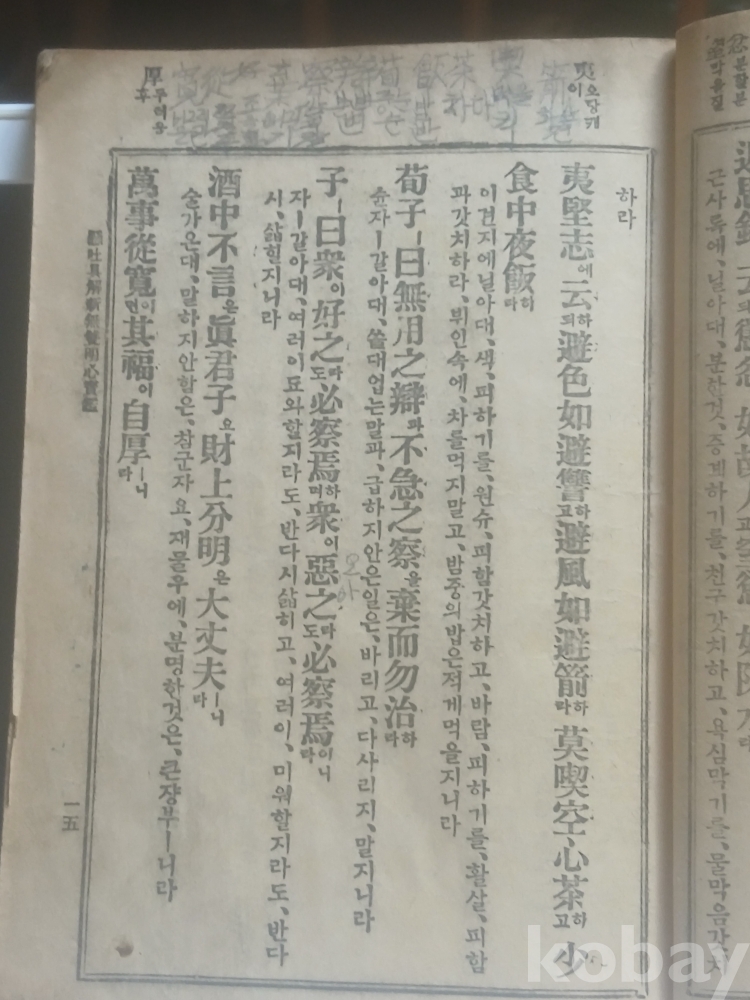 夷 오랑캐 이
厚 두터울 후
하라
夷堅志에云하되避色如避讐하고避風如避箭하라莫喫空心茶하고少
食中夜飯하라
이견지에닐아대、색、피하기를、원슈、피함갓치하고、바람、피하기를、활살、피함
과갓치하라、뷔인속에、차를먹지말고、밤중의밥은적게먹을지니라
荀子ㅣ曰無用之辯과不急之察을棄而勿治하라
슌자ㅣ갈아대、쓸대업는말과、급하지안은일은、바리고、다사리지、말지니라
子ㅣ曰衆이好之라도必察焉하며衆이惡之라도必察焉이니라
오
하
자ㅣ갈아대、여러이됴와할지라도、반다시삷히고、여러이、미워할지라도、반다
시、삷힐지니라
酒中不言은眞君子요財上分明은大丈夫ㅣ니라
술가온대、말하지안함은、참군자요、재물우에、분명한것은、큰쟝부ㅣ니라
萬事從寬이면其福이自厚ㅣ니라
懸吐具解新鐫明心寶鑑
一五
분할 분
막을 질
云되
근사록에、닐아대、분한것、증계하기를、친구갓치하고、욕심막기를、물막음갓치
kobay